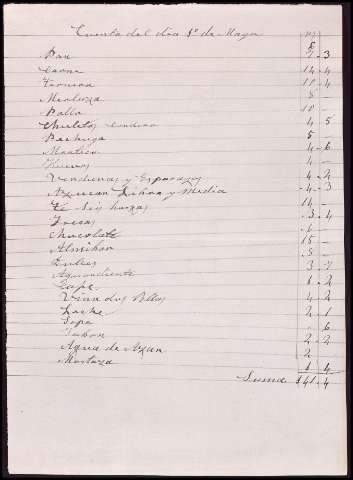 Cuenta del día 1º de Mayo
Pan 7 - 3
Carne 14 - 4
Ternera 11 - 4
Merluza 8 -
Pollo 10 -
Chuletas 4 5
Lechuga 5 -
Manteca 4 - 6
Huevos 4 -
Verduras y Esparragos 4 - 2
Azucar Libra y Media 4 - 3
Té Seis onzas 14 -
Fresas 3 4
Chocolate 6 -
Almibar 15 -
Dulces 3 -
Aguardiente 3 7
Café 1 2
Vino dos Botellas 4 2
Leche 2 1
Sopa - 6
Jabon 2 2
Agua de Azar 2
Mostaza 1 4
Suma $141 - 4